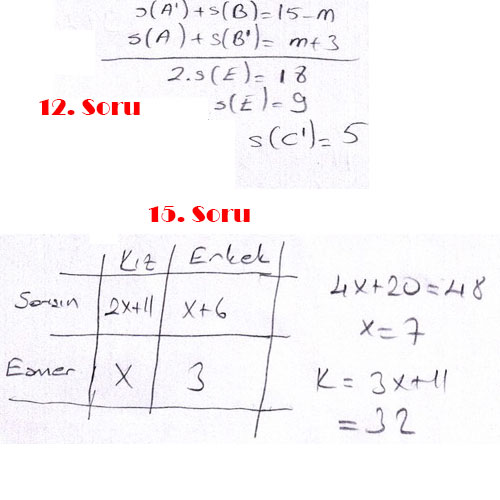 s(A')+s(B)=15-m
s(A)+s(B')=m+3
2.s(E)=18
12. Soru
s(E)=9
s(C')=5
15. Soru
Kız Erkek
Sarışın 2x+11 x+6
Esmer x 3
4x+20=48
x=7
K=3x+11
=32